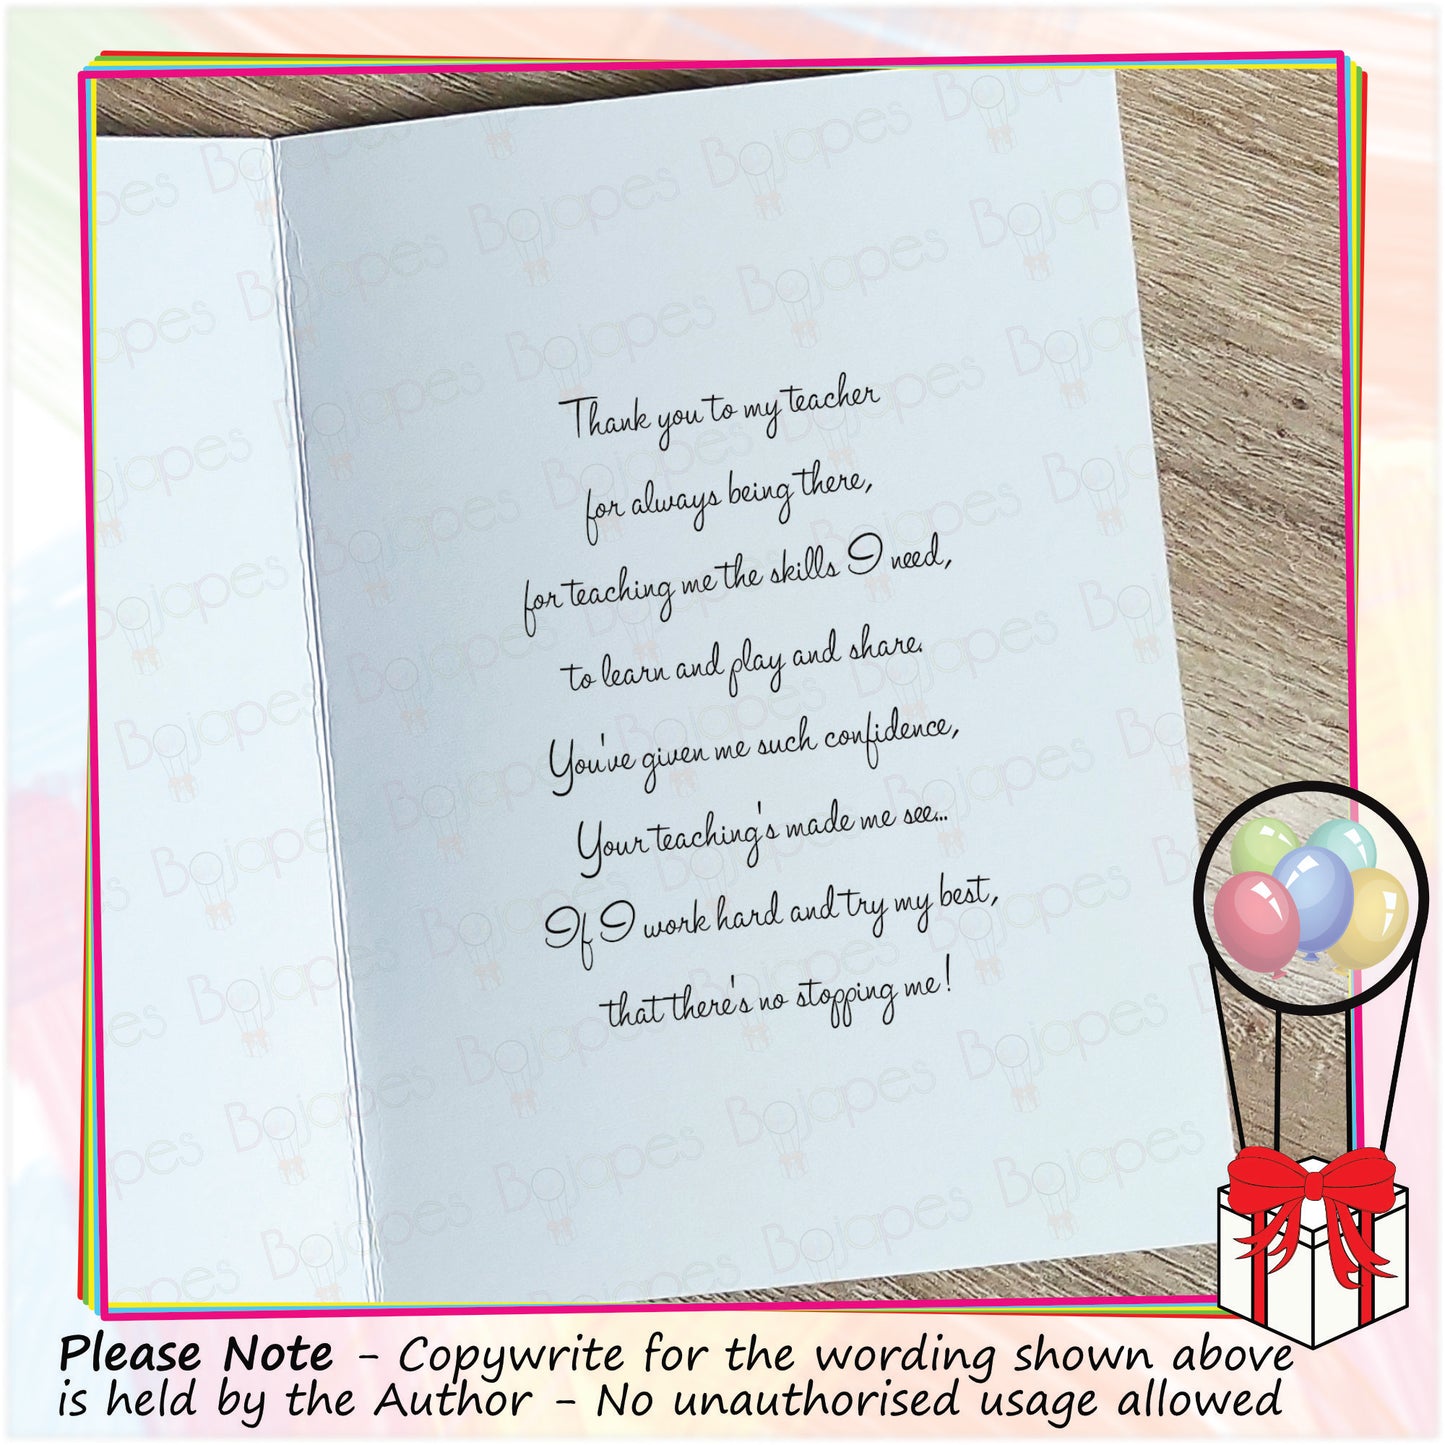 Thank you to my teacher
for always being there,
for teaching me the skills I need,
to learn and play and share.
You've given me such confidence,
Your teaching's made me see...
If I work hard and try my best,
that there's no stopping me!
Bojapes
Please Note - Copywrite for the wording shown above
is held by the Author - No unauthorised usage allowed